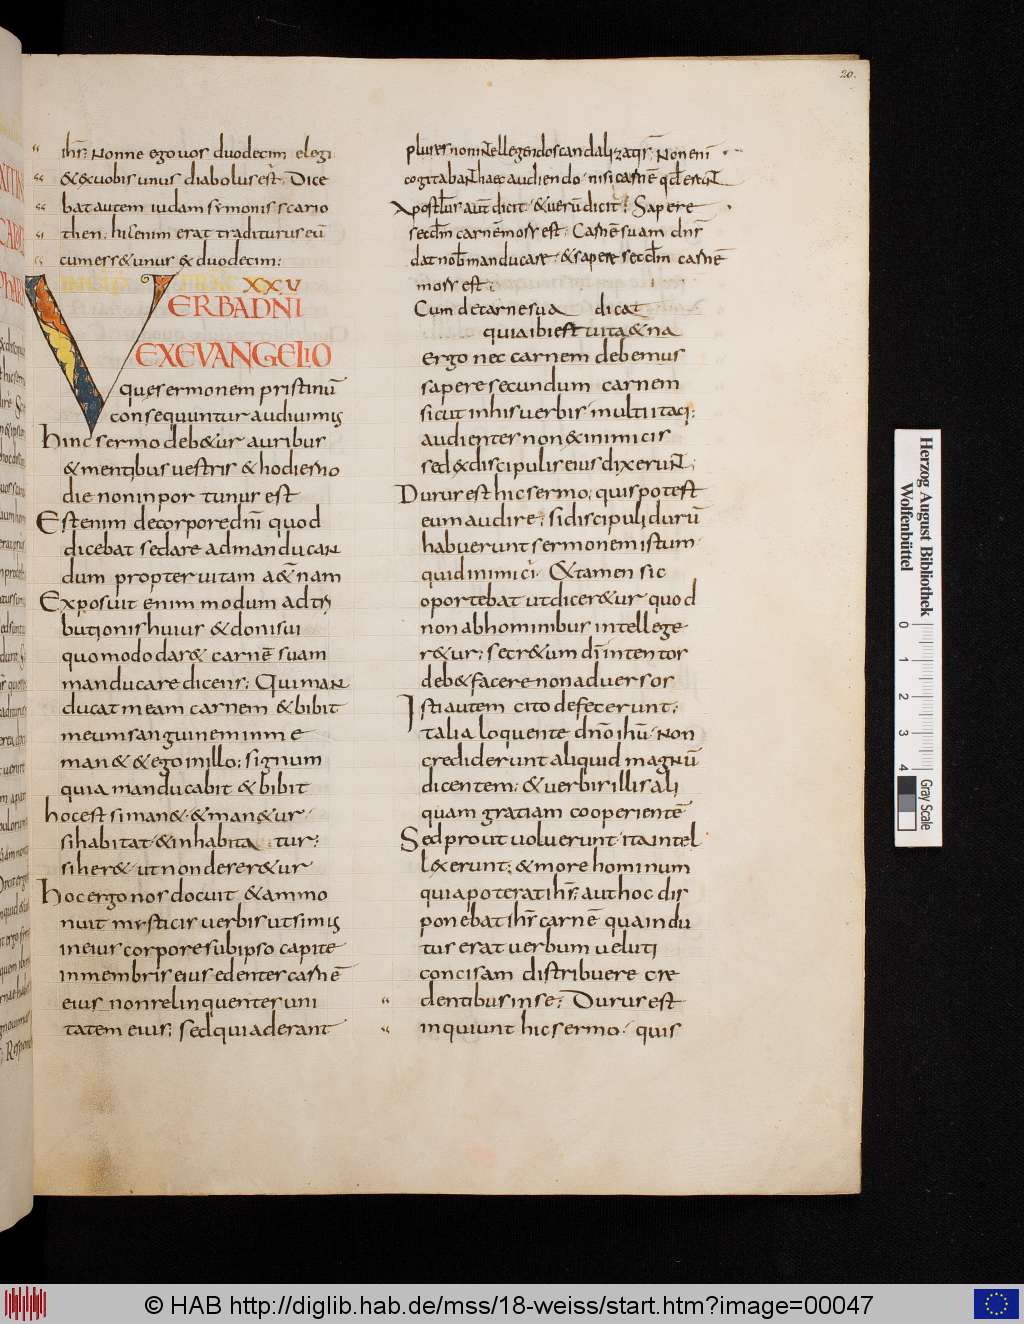 20.
ihs̄; Nonne ego uos duodecim elegi
& ex uobis unus diabolus est; Dice
bat autem iudam symonis scario
then; hic enim erat traditurus eū
cum ess& unus ex duodecim:
XXV
VERBA DN̄I
EX EVANGELIO
que sermonem pristinū
consequuntur audiuimus
hinc sermo deb&ur auribus
& mentibus uestris & hodierno
die non inportunus est
Est enim de corpore dn̄i quod
dicebat se dare ad manducan
dum propter uitam a&̄nam
Exposuit enim modum adtri
butionis huius & doni sui
quomodo dar& carnē suam
manducare dicens; Qui man
ducat meam carnem & bibit
meum sanguinem in me
man& & ego in illo; signum
quia manducabit & bibit
hoc est si man& & man&ur
si habitat & inhabitatur;
si her& ut non derer&ur
hoc ergo nos docuit & ammo
nuit mysticis uerbis ut simus
in eius corpore sub ipso capite
in membris eius edentes carnē
eius non relinquentes uni
tatem eius; sed qui aderant
plures non intellegendo scandalizati sꝭ; Non enī
cogitabant haec audiendo nisi carnē qđ erant
Apostłus aut̄ dicit & uerū dicit; Sapere
secđm carnē mors est; Carnē suam dn̄s
dat nob manducare & sapere secđm carnē
mors est;
Cum de carne sua dicat
quia ibi est uita &̄na
Ergo nec carnem debemus
sapere secundum carnem
sicut in his uerbis multi itaq;
audientes non & inimicis
sed & discipuli eius dixerunt;
Durus est hic sermo; quis potest
eum audire; si discipuli durū
habuerunt sermonem istum
quid inimici; & tamen sic
oportebat ut dicer&ur quod
non ab hominibus intellege
r&ur; secr&um dī intentos
deb& facere non aduersos
Isti autem cito defecerunt;
talia loquente dn̄o ihū non
crediderunt aliquid magnū
dicentem; & uerbis illis ali
quam gratiam cooperientē
Sed prout uoluerunt ita intel
lexerunt; & more hominum
quia poterat ihs̄; aut hoc dis
ponebat ihs̄ carnē qua indu
tus erat uerbum ueluti
concisam distribuere cre
dentibus in se; Durus est
inquiunt hic sermo; quis
Herzog August Bibliothek
Wolfenbüttel
0 1 2 3 4
Gray Scale
© HAB http://diglib.hab.de/mss/18-weiss/start.htm?image=00047